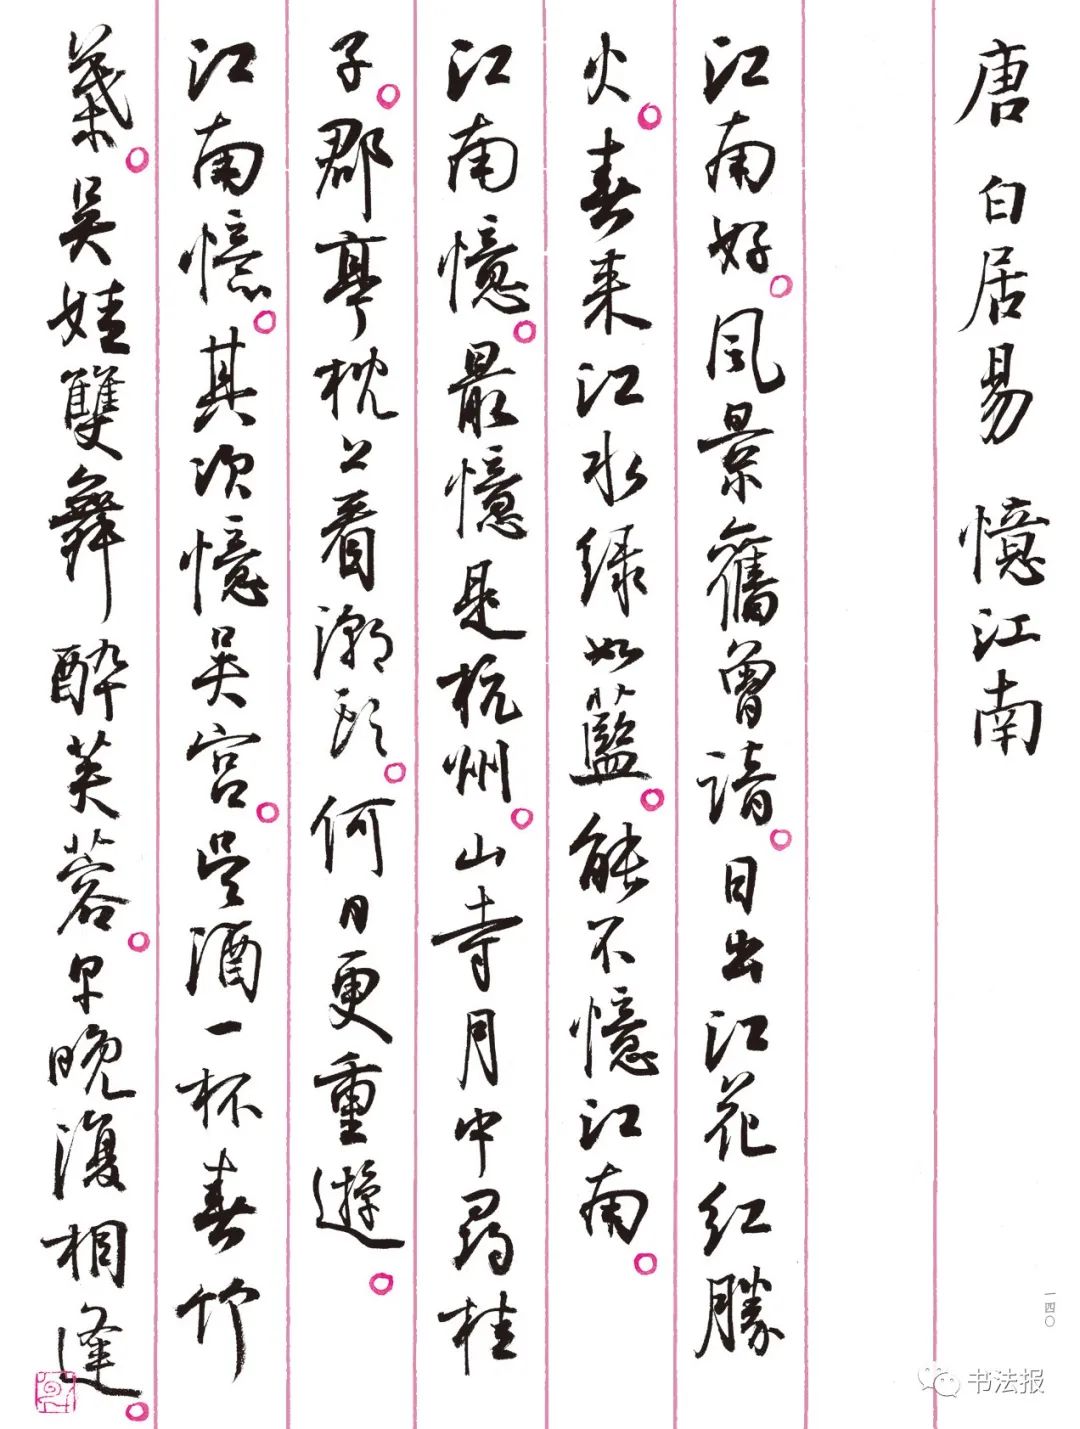 唐 白居易 憶江南
江南好。風景舊曾諳。日出江花红勝
火。春来江水绿如藍。能不憶江南。
江南憶。最憶是杭州。山寺月中尋桂
子。郡亭枕上看潮頭。何日更重遊。
江南憶。其次憶吴宫。吴酒一杯春竹
葉。吴娃雙舞醉芙蓉。早晚復相逢。
一四〇
书法报